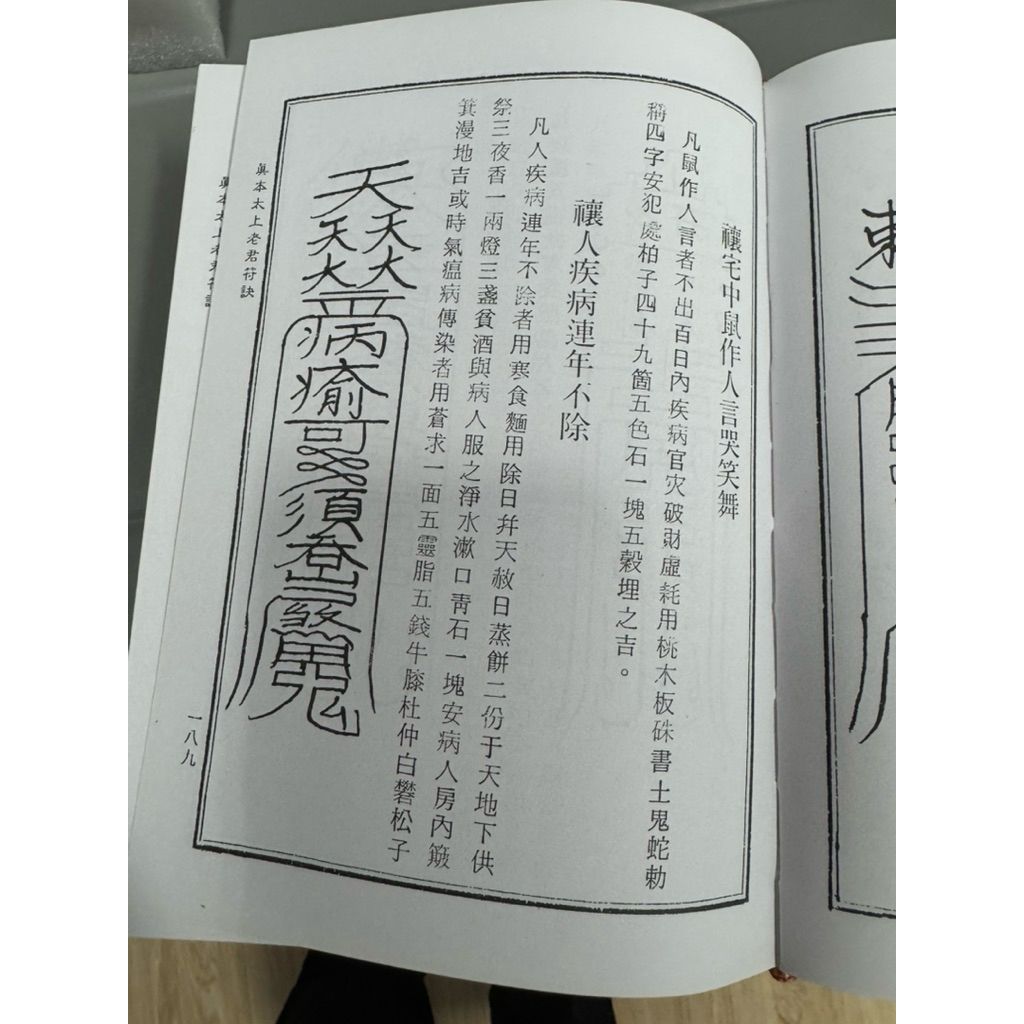 禳宅中鼠作人言哭笑舞
凡鼠作人言者不出百日內疾病官灾破財虛耗用桃木板硃書土鬼蛇勅
稱四字安犯處柏子四十九箇五色石一塊五穀埋之吉。
禳人疾病連年不除
凡人疾病連年不除者用寒食麵用除日幷天赦日蒸餅二份于天地下供
祭三夜香一兩燈三盞貧酒與病人服之淨水漱口靑石一塊安病人房內簸
箕漫地吉或時氣瘟病傳染者用蒼求一面五靈脂五錢牛膝杜仲白礬松子
病瘉可
須吞
眞本太上老君符訣
一八九